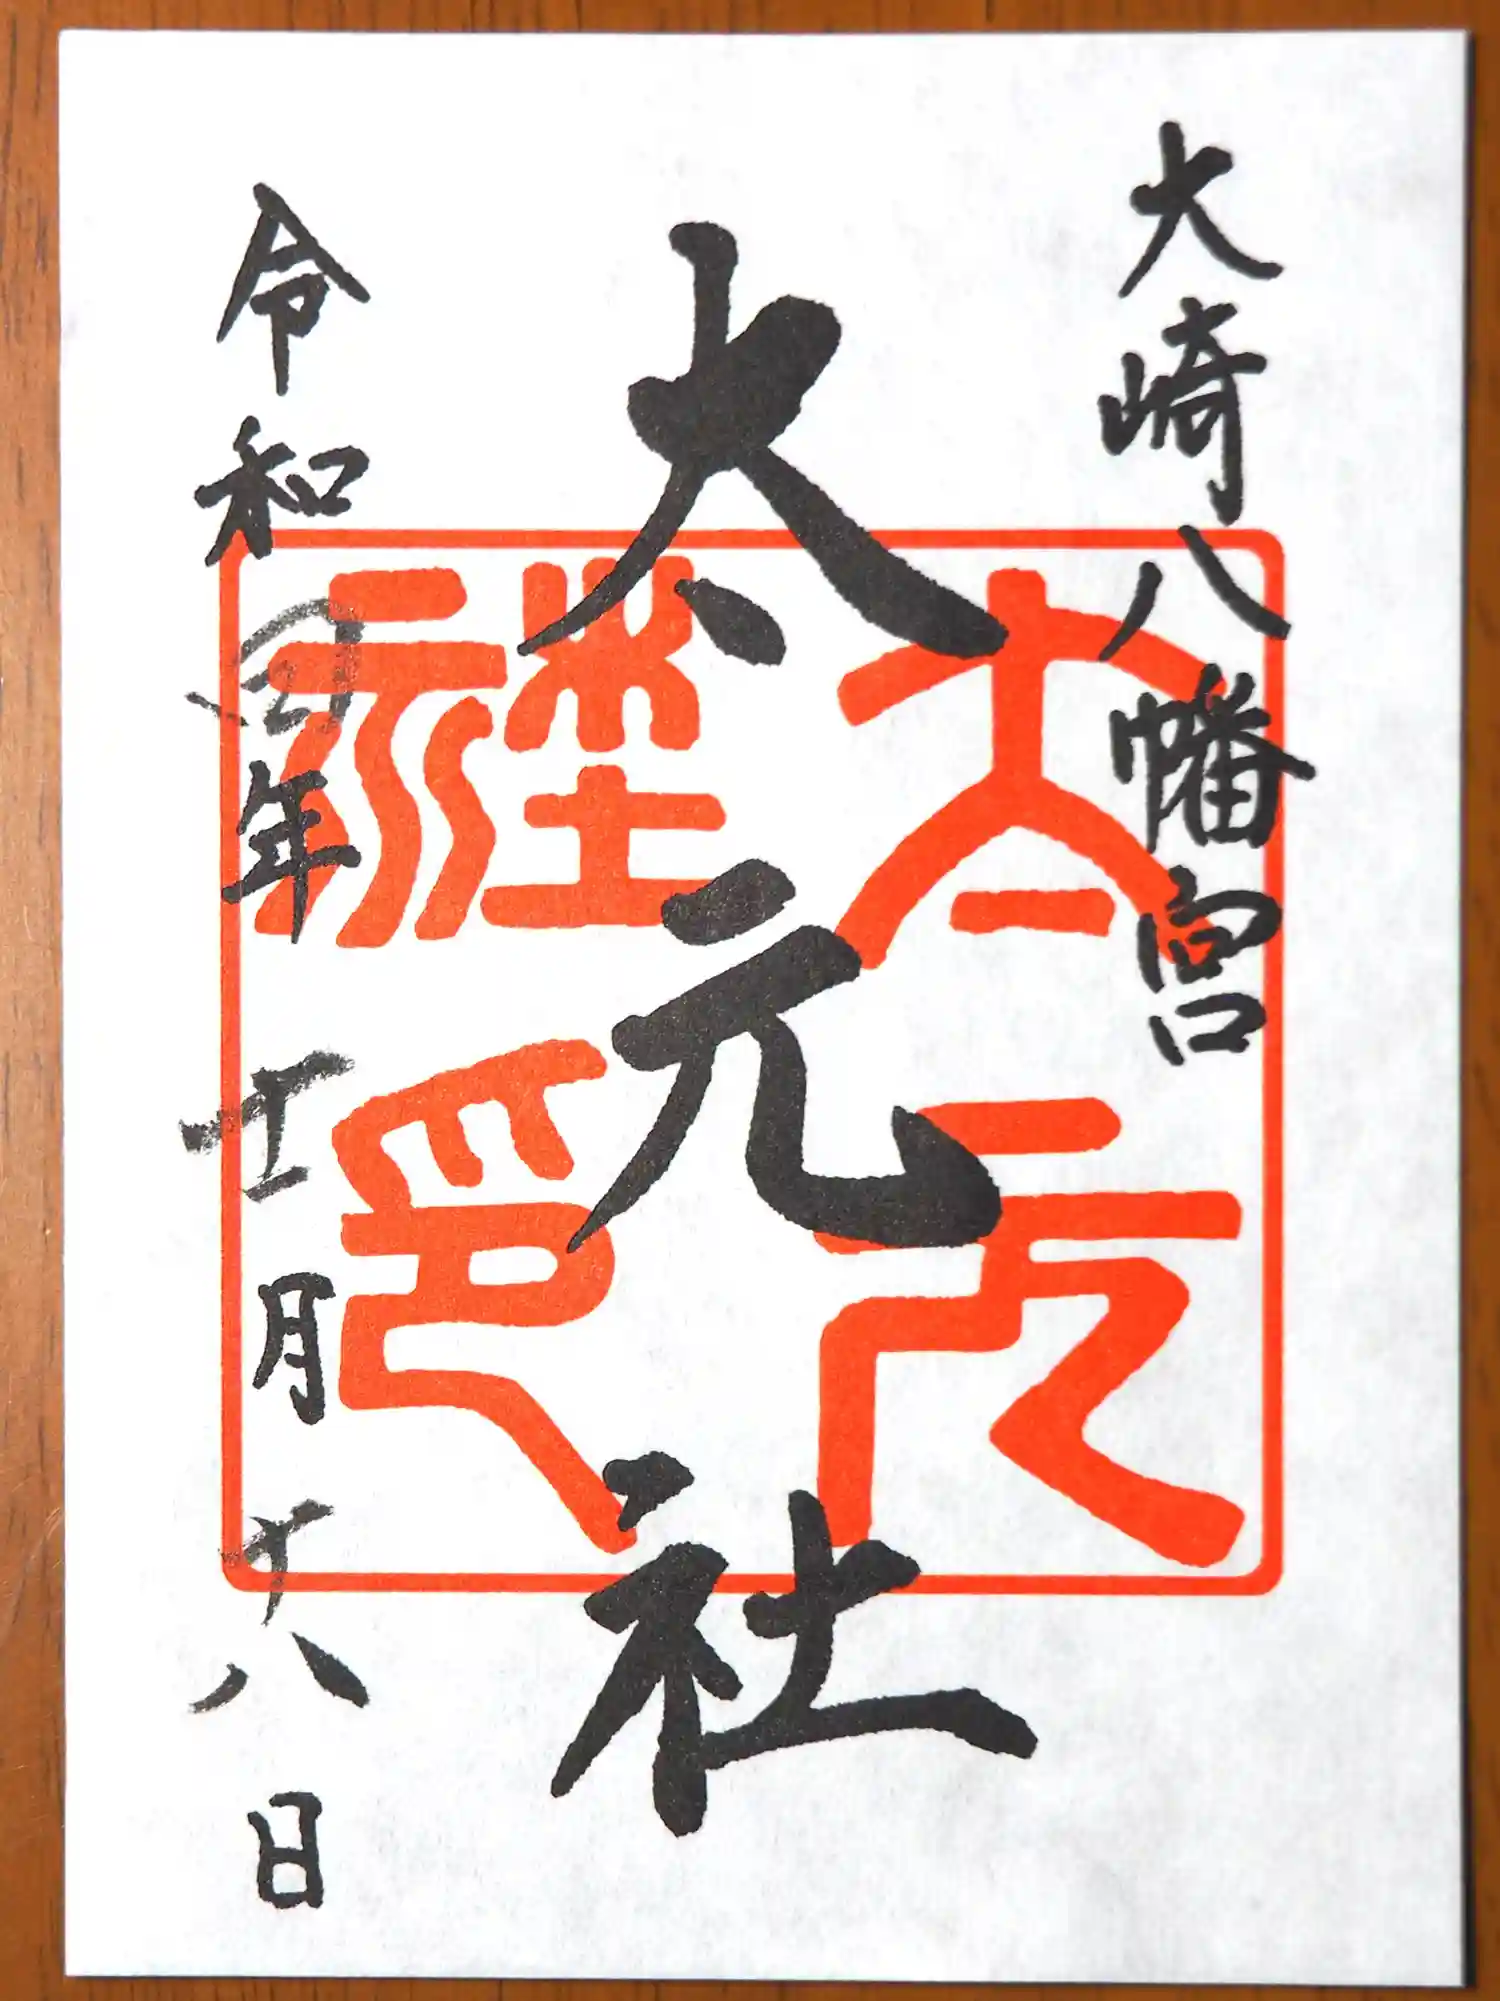 大崎八幡宮
太元社
令和四年十一月十八日
太元
社印